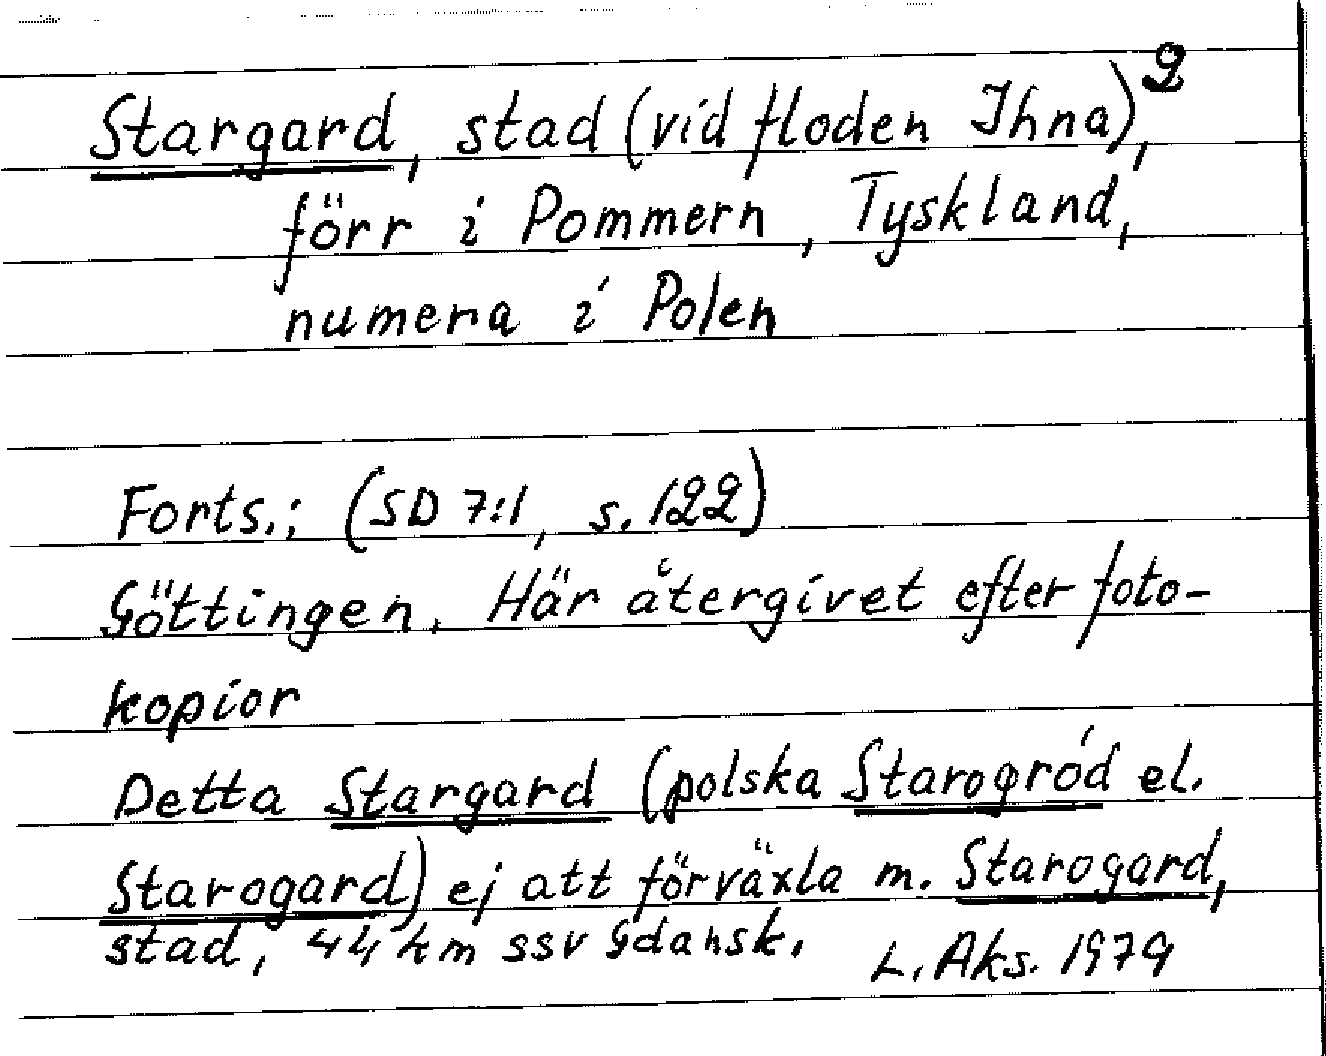 2
Stargard, stad (vid floden Ihna),
förr i Pommern, Tyskland,
numera i Polen
Forts.; (SD 7:1, s. 122)
Göttingen. Här återgivet efter foto-
kopior
Detta Stargard (polska Starogród el.
Starogard) ej att förväxla m. Starogard,
stad, 44 km ssv Gdansk.
L. Aks. 1979